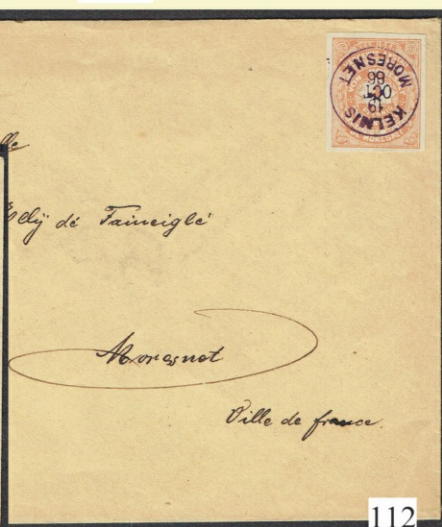 KELMIS
19
OCT
99
MORESNET
lle
dÿ de Taineiglé
Moresnet
Ville de france.
112